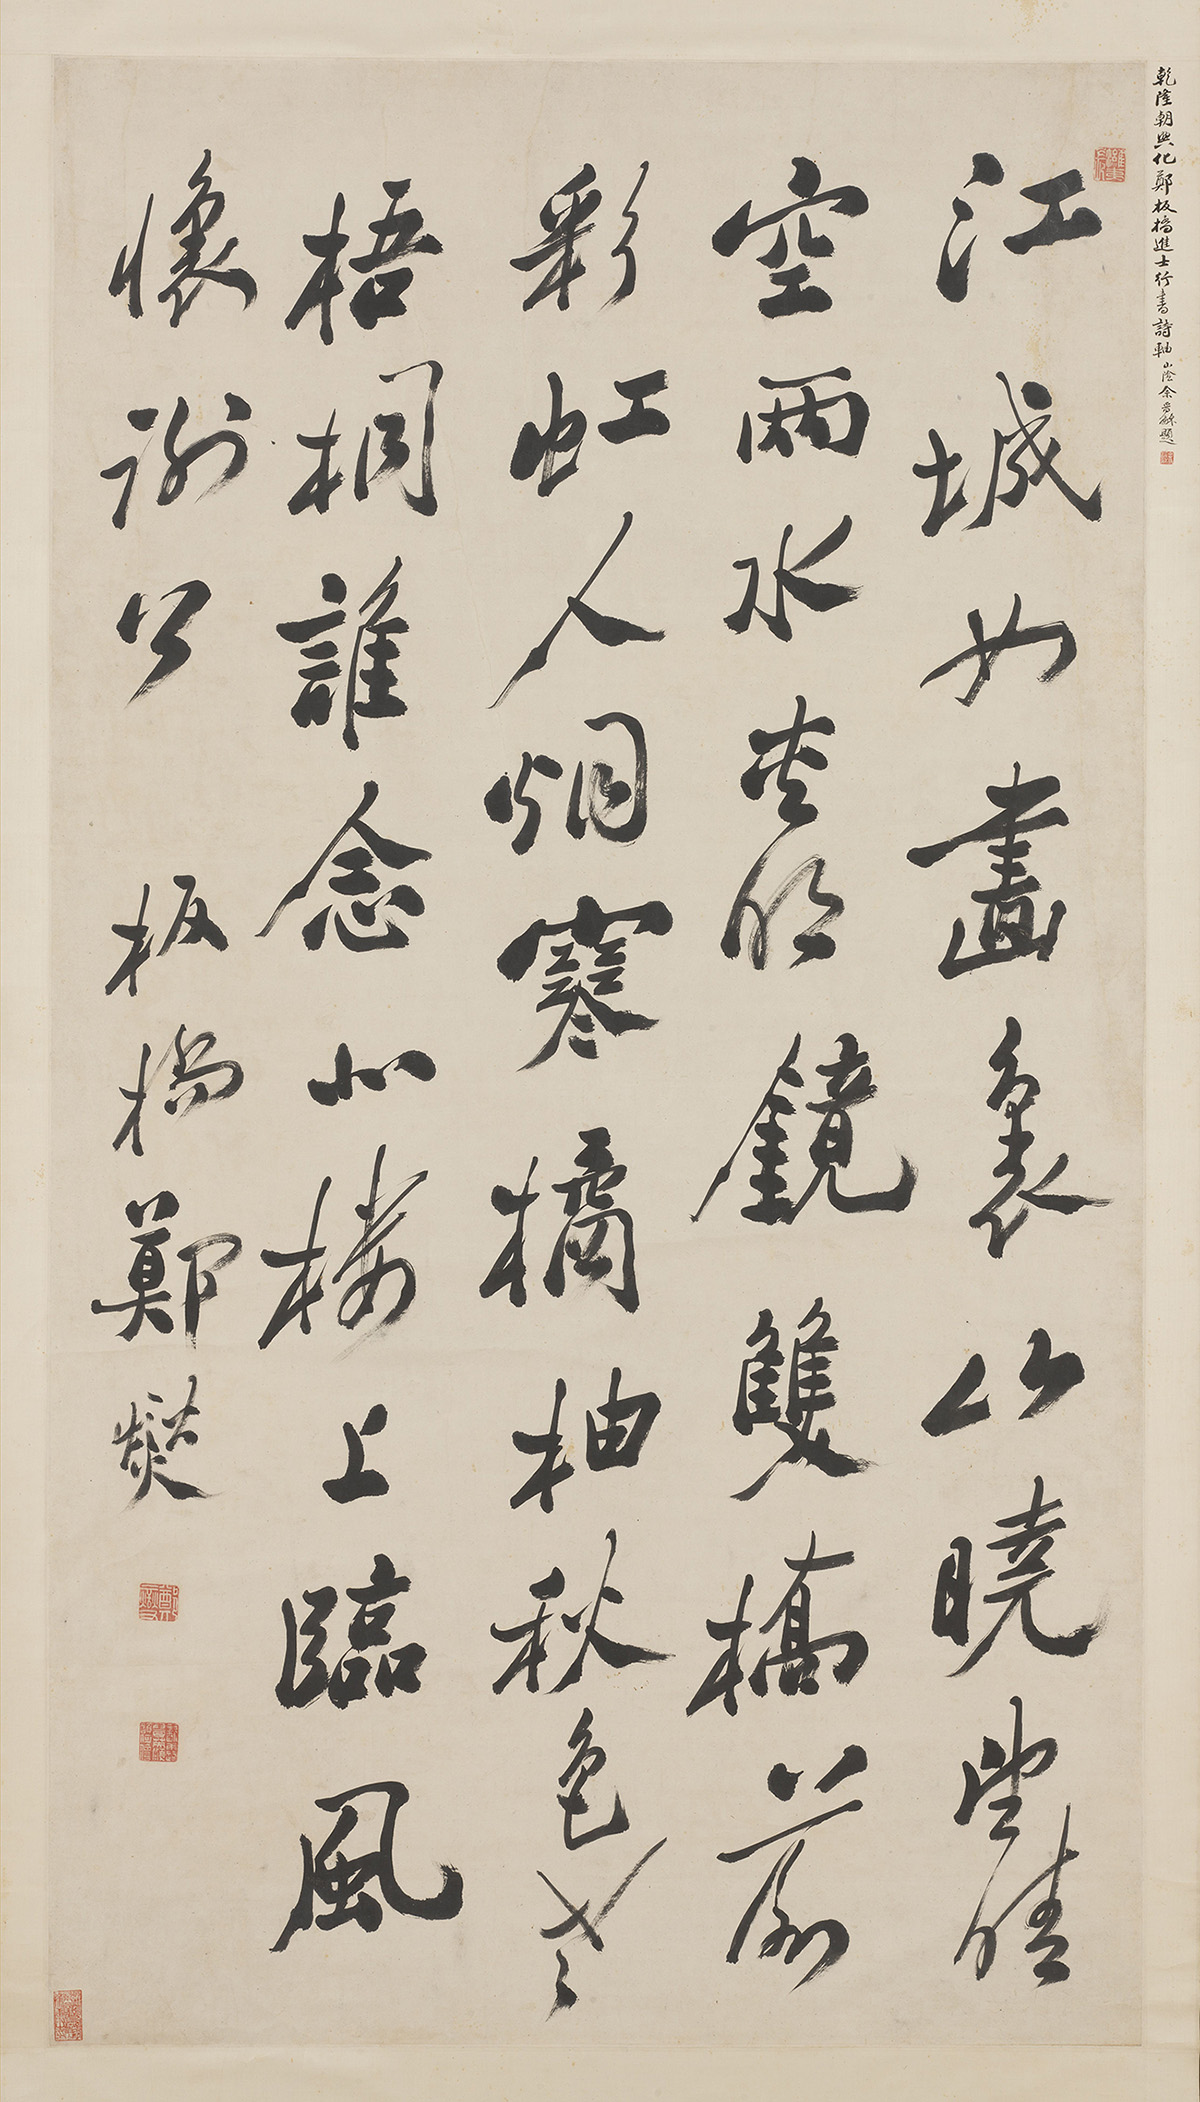 乾隆朝興化鄭板橋進士行書詩軸 山陰余晉龢題
江城如畫裏山曉望晴
空兩水夾明鏡雙橋落
彩虹人烟寒橘柚秋色老
梧桐誰念北樓上臨風
懷謝公 板橋鄭燮